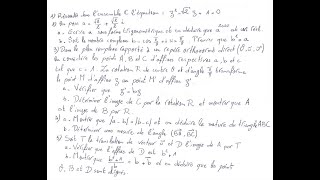 1) Résoudre dans l'ensemble C l'équation : z² - √2 z + 1 = 0
2) On pose a = √2/2 + i √2/2
a. Ecrire a sous forme trigonométrique et en déduire que a est un réel.
b. Soit le nombre complexe b = cos + i sin . Prouver que b² = a
3) Dans le plan complexe rapporté à un repère orthonormé direct (O, u, v)
considère les points A, B et C d'affixes respectives a, b et c
tel que c = 1. La rotation R de centre O et d'angle transforme
le point M d'affixe z au point M' d'affixe z'
a. Vérifier que z' = bz
b. Déterminer l'image de C par la rotation R et montrer que A
est l'image de B par R.
4) a. Montrer que |a - b| = |b - c| et en déduire la nature du triangle ABC
b. Déterminer une mesure de l'angle (BA, BC)
5) Soit T la translation de vecteur et D l'image de A par T
a. Vérifier que l'affixe de D est b² + 1
b. Montrer que (b² + 1)/b = b + b̄ et en déduire que les points
O, B et D sont alignés